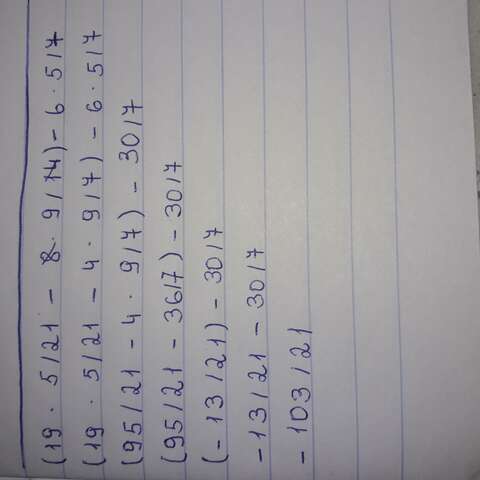 (19 · 5/21 - 8 · 9/14) - 6 · 5/7
(19 · 5/21 - 4 · 9/7) - 6 · 5/7
(95/21 - 4 · 9/7) - 30/7
(95/21 - 36/7) - 30/7
(-13/21) - 30/7
-13/21 - 30/7
-103/21